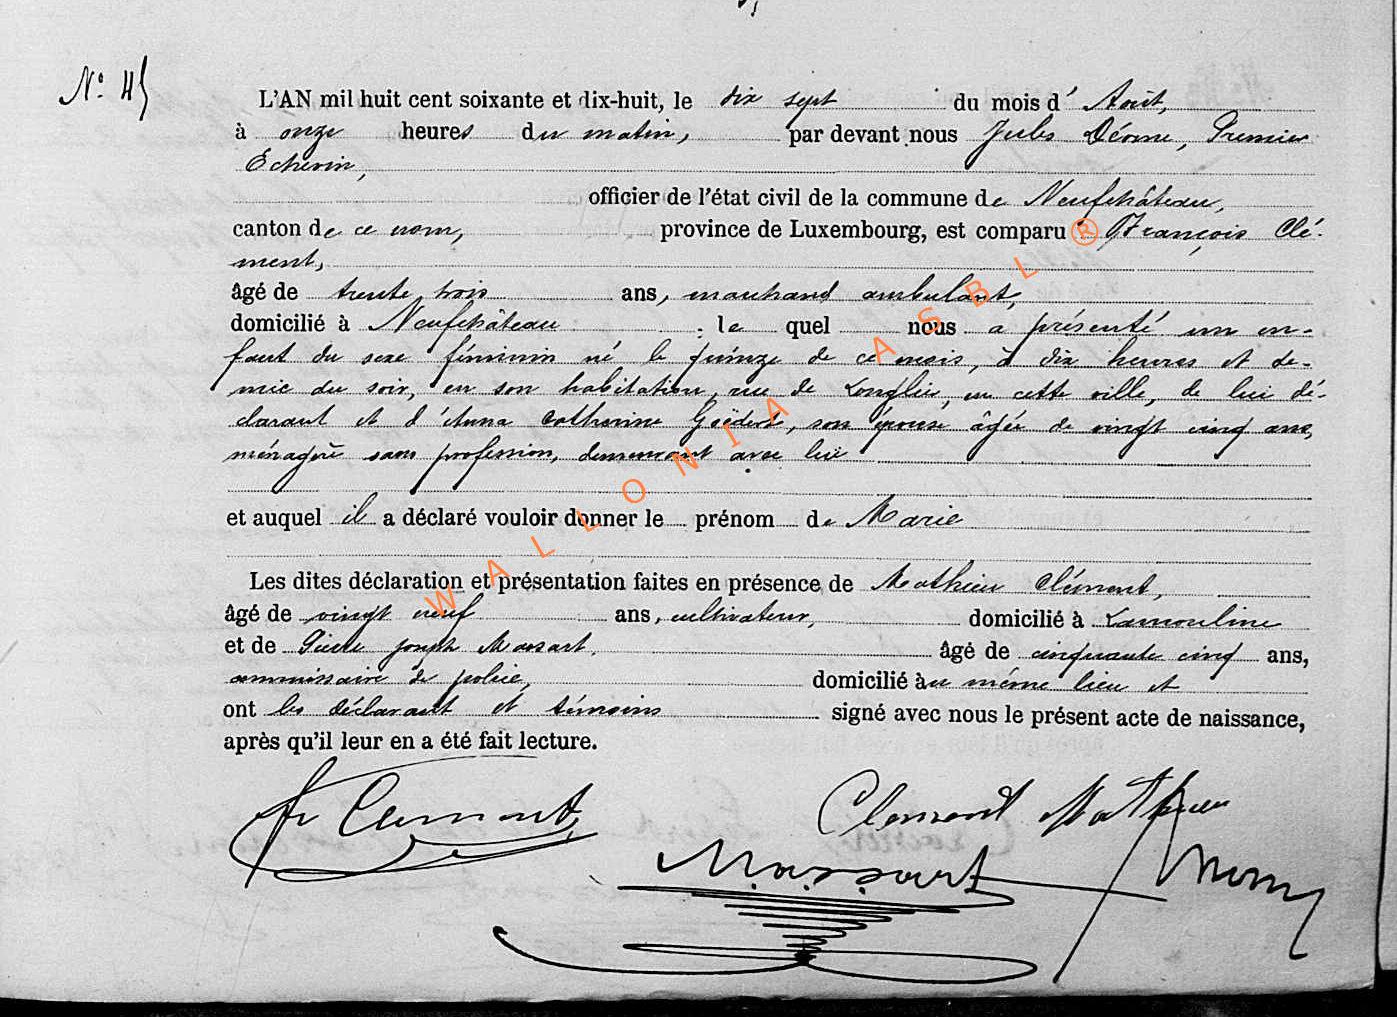 N° 45
L'AN mil huit cent soixante et dix-huit, le dix sept du mois d' Août,
à onze heures du matin, par devant nous Jules Déome, Premier
Echevin,
officier de l'état civil de la commune de Neufchâteau,
canton de ce nom, province de Luxembourg, est comparu François Clé-
ment,
âgé de trente trois ans, marchand ambulant,
domicilié à Neufchâteau le quel nous a présenté un en-
fant du sexe féminin né le quinze de ce mois, à dix heures et de-
mie du soir, en son habitation, rue de Longlier, en cette ville, de lui dé-
clarant et d'Anna Catherine Goëdert, son épouse âgée de vingt cinq ans,
ménagère sans profession, demeurant avec lui
et auquel il a déclaré vouloir donner le prénom de Marie
Les dites déclaration et présentation faites en présence de Mathieu Clément,
âgé de vingt neuf ans, cultivateur, domicilié à Lamouline
et de Pierre Joseph Massart, âgé de cinquante cinq ans,
commissaire de police, domicilié au même lieu et
ont les déclarant et témoins signé avec nous le présent acte de naissance,
après qu'il leur en a été fait lecture.
fr Clement
Clement Mathieu
Massart
WALLONIA ASBL ®